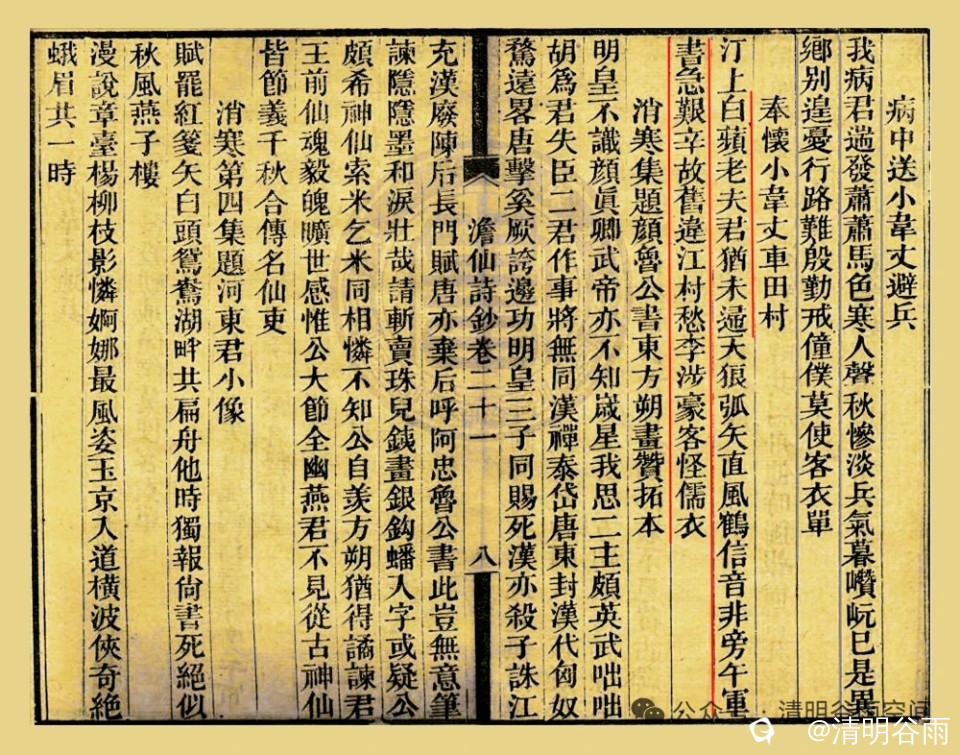 病中送小韋丈避兵
我病君遄發蕭蕭馬色寒人聲秋慘淡兵氣暮巑岏已是異
鄉别遑憂行路難殷勤戒僮僕莫使客衣單
奉懷小韋丈車田村
汀上白蘋老夫君猶未歸天狼弧矢直風鶴信音非旁午軍
書急艱辛故舊違江村愁李涉豪客怪儒衣
消寒集題顏魯公書東方朔畫贊拓本
明皇不識顏眞卿武帝亦不知歲星我思二主頗英武咄咄
胡爲君失臣二君作事將無同漢禪泰岱唐東封漢代匈奴
騖遠畧唐擊奚厥誇邊功明皇三子同賜死漢亦殺子誅江
澹仙詩鈔卷二十一
八
充漢廢陳后長門賦唐亦棄后呼阿忠魯公書此豈無意筆
諫隱隱墨和淚壯哉請斬賣珠兒銕畫銀鈎蟠人字或疑公
頗希神仙索米乞米同相憐不知公自羡方朔猶得譎諫君
王前仙魂毅魄曠世感惟公大節全幽燕君不見從古神仙
皆節義千秋合傳名仙吏
消寒第四集題河東君小像
賦罷紅箋矢白頭鴛鴦湖畔共扁舟他時獨報尙書死絕似
秋風燕子樓
漫說章臺楊柳枝影憐婀娜最風姿玉京入道橫波俠奇絕
蛾眉共一時
公众号·清明谷雨空间
@清明谷雨